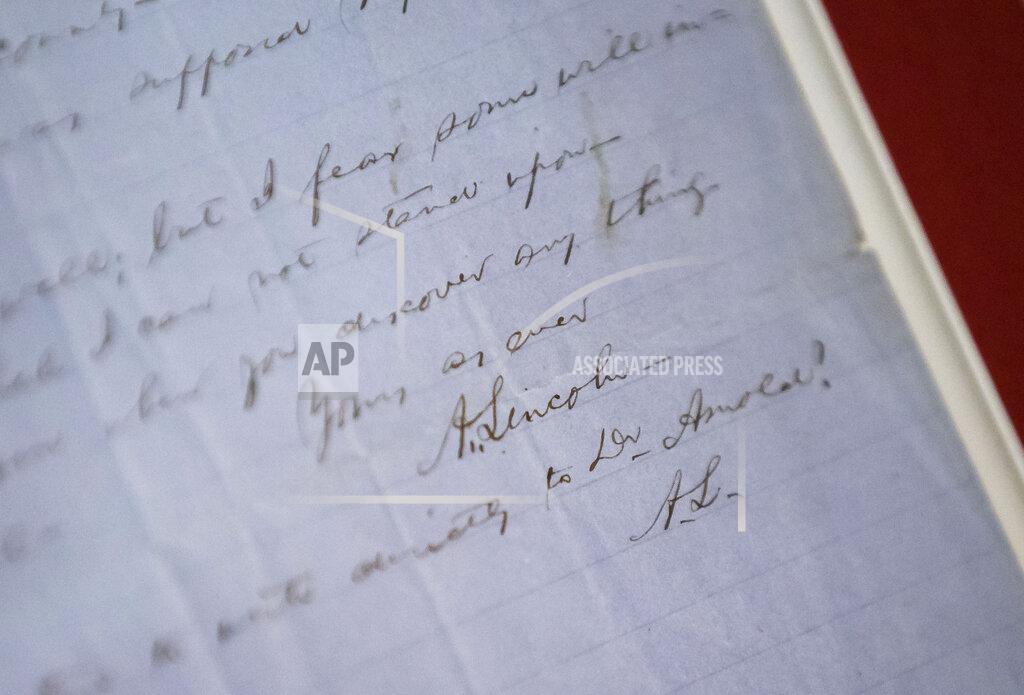 county—
supposed
well; but I fear some will in-
I can not stand upon—
you discover any thing
Yours as ever
A. Lincoln—
write directly to Dr. Arnold?
A.L—
AP
ASSOCIATED PRESS